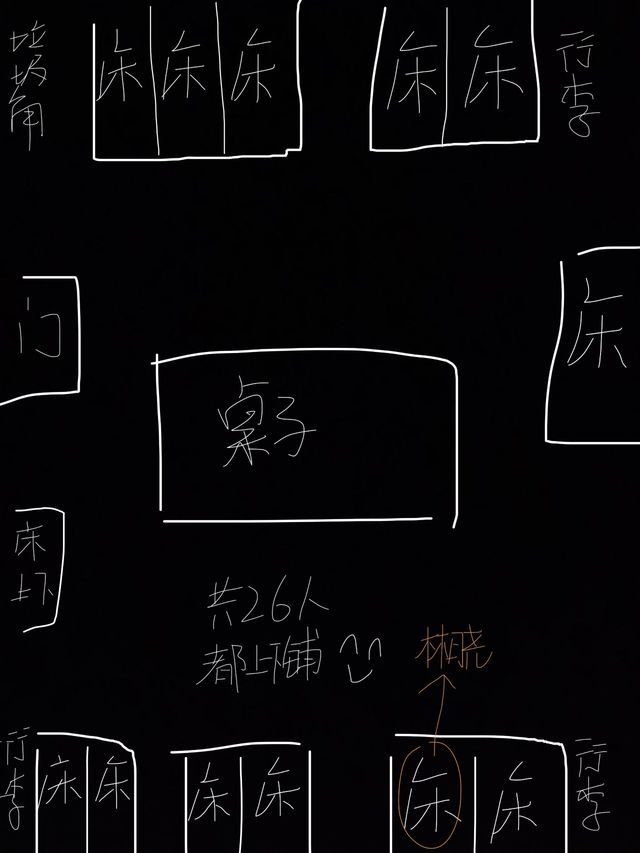 垃圾角
床
床
床
床
床
行李
门
床
桌子
床
上下
共26人
都上下铺
林晓
行李
床
床
床
床
床
床
行李